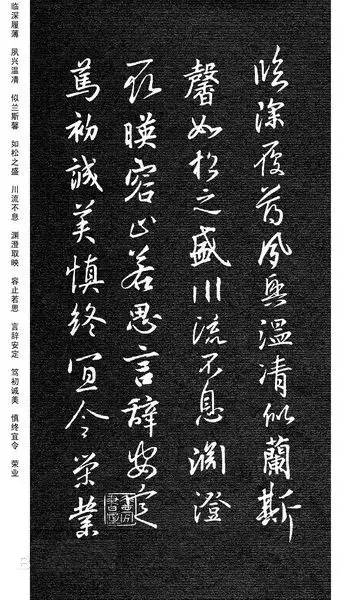 臨深履薄夙興温凊似蘭斯
馨如松之盛川流不息渊澄
取暎容止若思言辞安定
篤初誠美慎终宜令荣業
临深履薄 夙兴温凊 似兰斯馨 如松之盛 川流不息 渊澄取映 容止若思 言辞安定 笃初诚美 慎终宜令 荣业